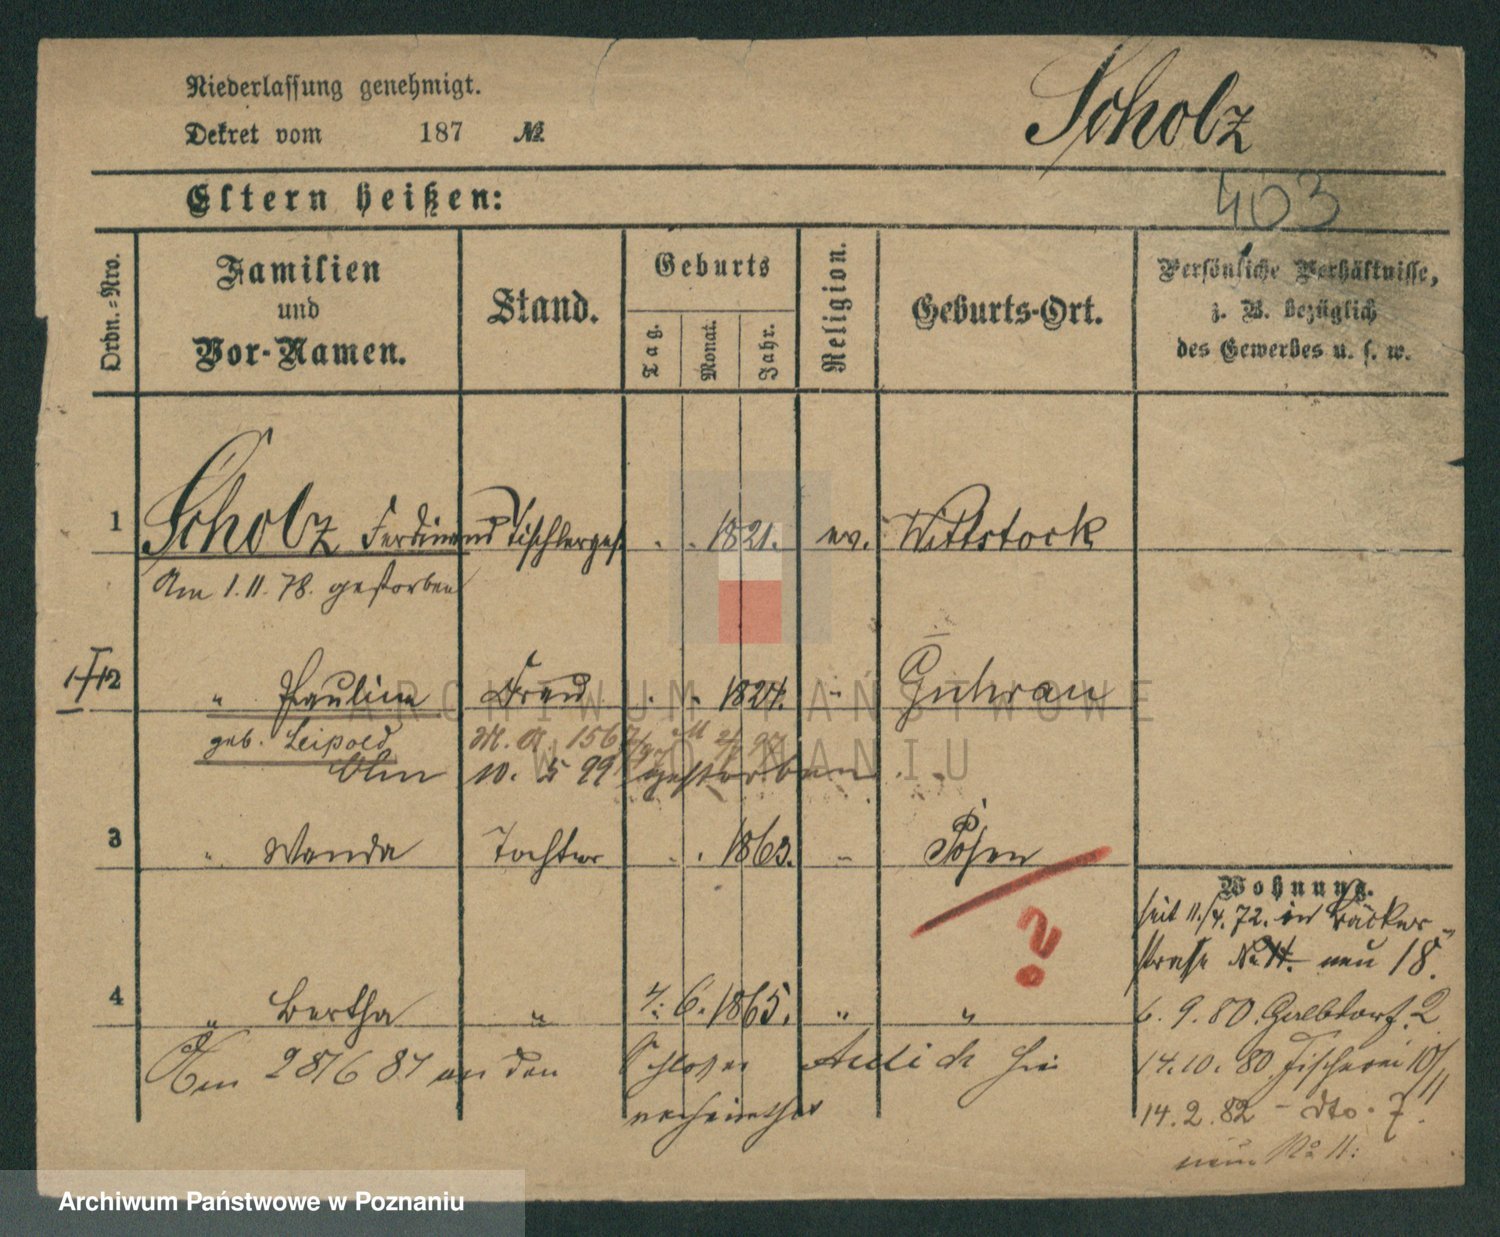 Niederlassung genehmigt.
Dekret vom 187 №
Scholz
403
Eltern heißen:
Ordn.-Nro.
Familien und Vor-Namen.
Stand.
Geburts
Tag. Monat. Jahr.
Religion.
Geburts-Ort.
Persönliche Verhältnisse,
z. B. bezüglich
des Gewerbes u. s. w.
1 Scholz Ferdinand Tischlerges. 1821. ev. Wittstock
Am 1.11.78. gestorben
2 " Pauline Frau 1824. " Guhrau
geb. Leipold
Am 10. 5 99 gestorben
3 " Wanda Tochter 1863. " Posen
?
4 " Bertha " 4. 6. 1865. " "
Am 28/6 87 an den Schlosser hier
verheirathet
Wohnung.
seit 11./4.72. in Bäcker-
strasse No 11. neu 18.
6. 9. 80. 2
14.10.80 Fischerei 10/11
14.2.82 - dto. 7.
neue No 11.
ARCHIWUM PAŃSTWOWE
W POZNANIU
Archiwum Państwowe w Poznaniu